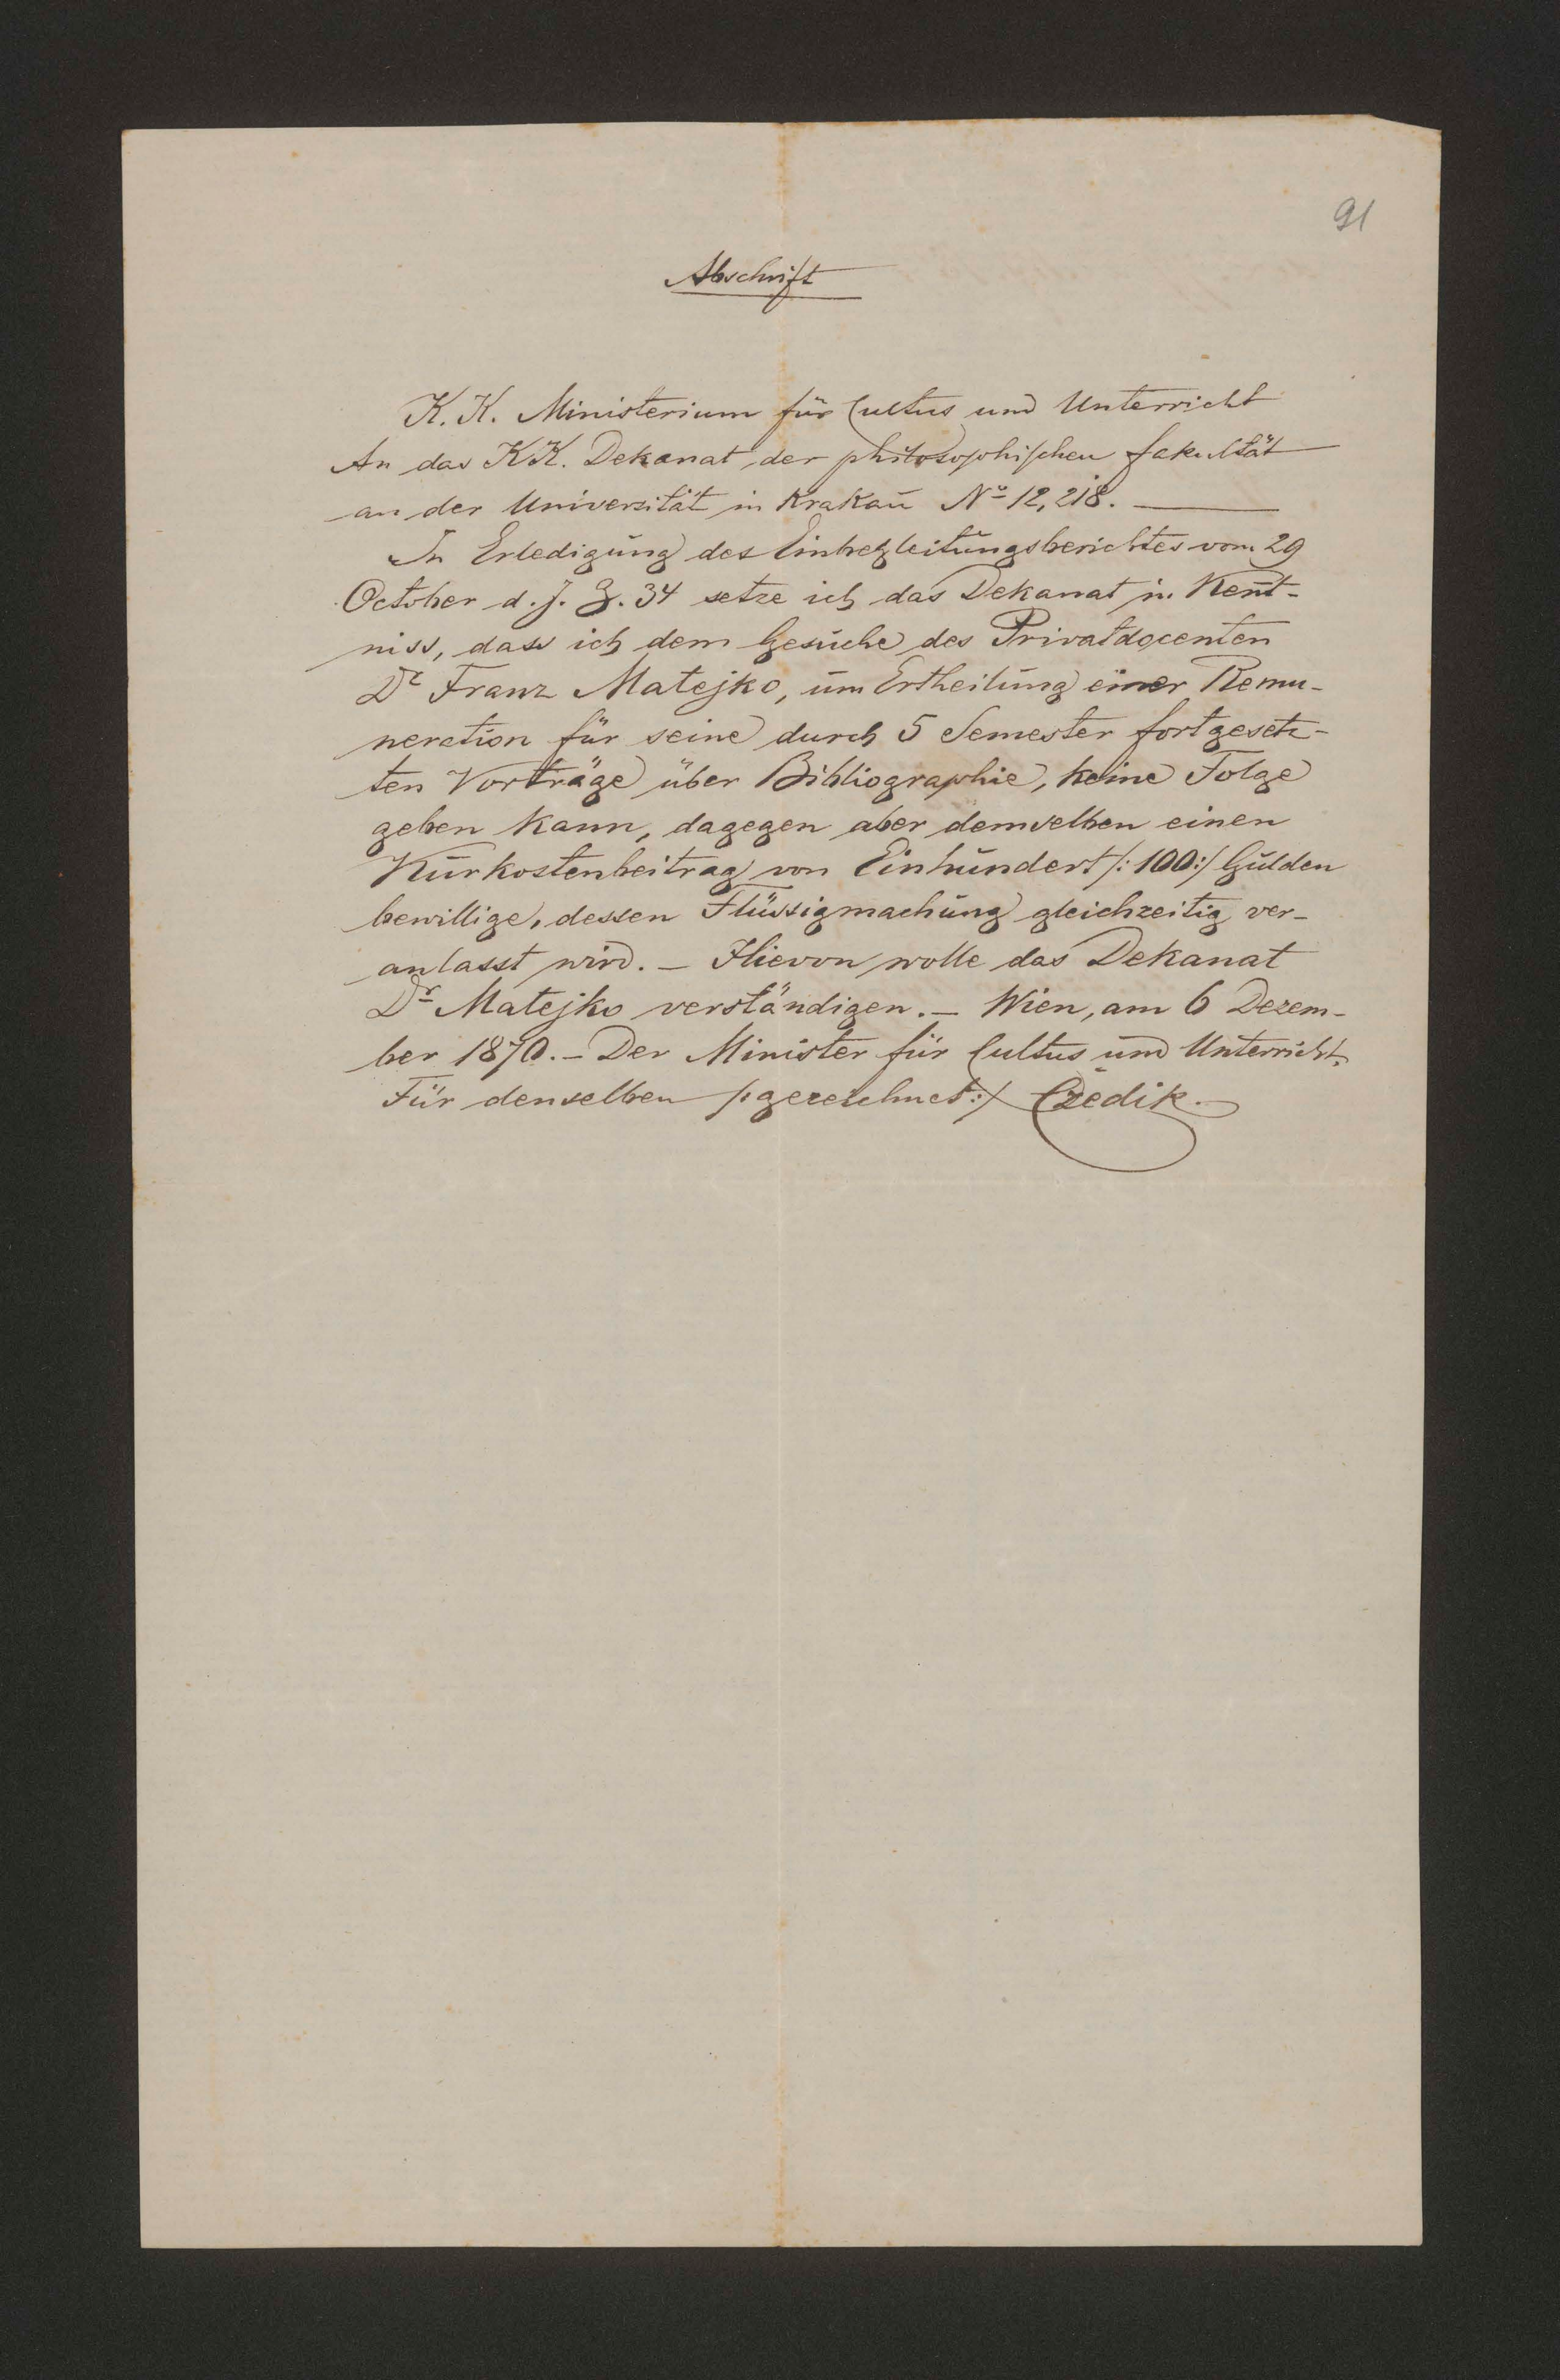 91
Abschrift
K. K. Ministerium für Cultus und Unterricht
An das KK. Dekanat der philosophischen fakultät
an der Universität in Krakau No 12,218.
In Erledigung des Einbegleitungsberichtes vom 29
October d. J. Z. 34 setze ich das Dekanat in Kent-
niss, dass ich dem Gesuche des Privatdocenten
Dr Franz Matejko, um Ertheilung einer Remu-
neration für seine durch 5 Semester fortgesetz-
ten Vorträge über Bibliographie, keine Folge
geben kann, dagegen aber demselben einen
Kurkostenbeitrag von Einhundert /: 100 :/ Gulden
bewillige, dessen Flüssigmachung gleichzeitig ver-
anlasst wird. – Hievon wolle das Dekanat
Dr Matejko verständigen. – Wien, am 6 Dezem-
ber 1870. – Der Minister für Cultus und Unterricht.
Für denselben /: gezeichnet :/ Czedik.